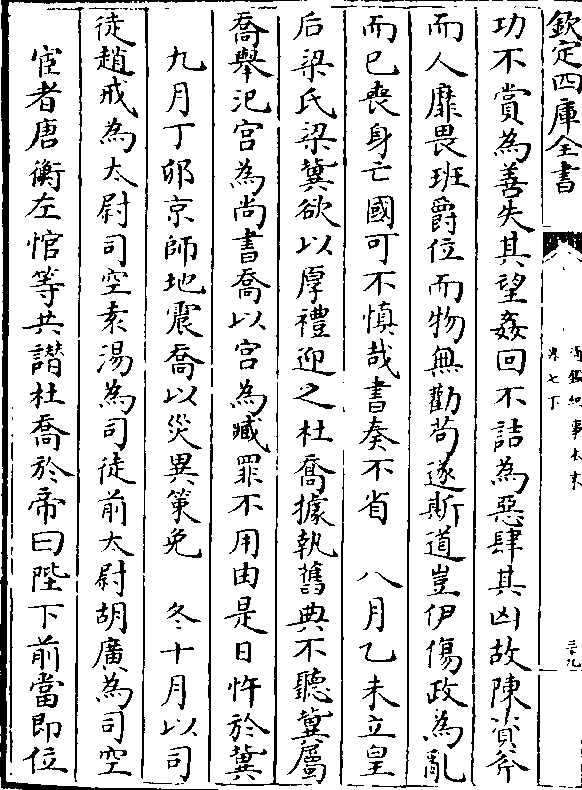 欽定四庫全書
通鑑紀事本末
卷七下
功不賞為善失其望姦回不詰為惡肆其凶故陳資斧
而人靡畏班爵位而物無勸茍遂斯道豈伊傷政為亂
而已喪身亡國可不慎哉書奏不省　八月乙未立皇
后梁氏梁冀欲以厚禮迎之杜喬據執舊典不聽冀屬
喬舉汜宮為尚書喬以宮為臧罪不用由是日忤於冀
九月丁卯京師地震喬以災異策免　冬十月以司
徒趙戒為太尉司空袁湯為司徒前太尉胡廣為司空
宦者唐衡左悺等共譖杜喬於帝曰陛下前當即位